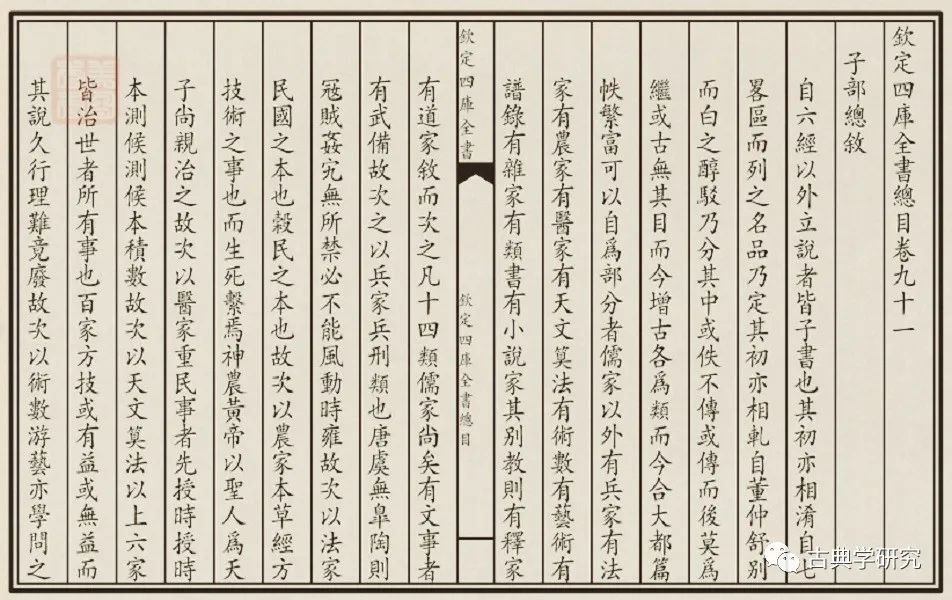 欽定四庫全書總目卷九十一
子部總敘
自六經以外立說者皆子書也其初亦相淆自七
畧區而列之名品乃定其初亦相軋自董仲舒別
而白之醇駁乃分其中或佚不傳或傳而後莫爲
繼或古無其目而今增古各爲類而今合大都篇
帙繁富可以自爲部分者儒家以外有兵家有法
家有農家有醫家有天文算法有術數有藝術有
譜錄有雜家有類書有小說家其別教則有釋家
欽定四庫全書
欽定四庫全書總目
有道家敘而次之凡十四類儒家尚矣有文事者
有武備故次之以兵家兵刑類也唐虞無皐陶則
宼賊姦宄無所禁必不能風動時雍故次以法家
民國之本也榖民之本也故次以農家本草經方
技術之事也而生死繫焉神農黃帝以聖人爲天
子尚親治之故次以醫家重民事者先授時授時
本測候測候本積數故次以天文算法以上六家
皆治世者所有事也百家方技或有益或無益而
其說久行理難竟廢故次以術數游藝亦學問之
古典学研究